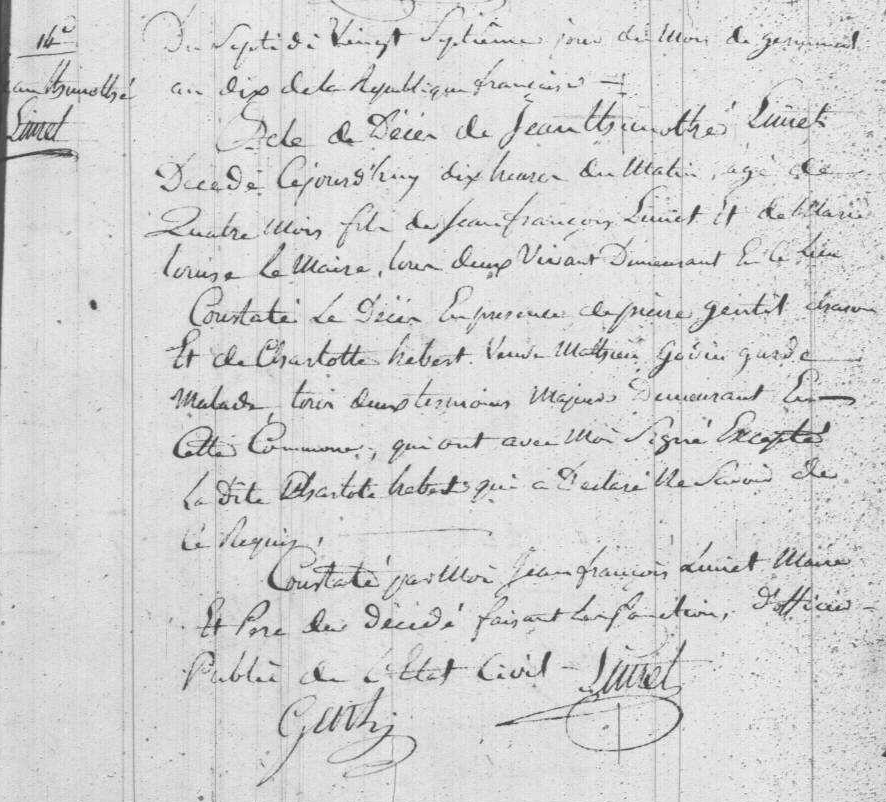 14e
Jean thimothé
Liniet
Du Septidi Vingt Septième jour du Mois de germinal
an dix de la Republique françoise
Acte de Décès de Jean thimothé Liniet
Décédé Cejourd'huy dix heures du Matin, agé de
Quatre Mois fils de Jean françois Liniet Et de Marie
Louise Le Maire, tous deux Vivant Demeurant En Ce Lieu
Constaté Le Décès En presence de pierre gentil
Et de Charlotte hebert Veuve Mathieu garde
Malade, tous deux temoins Majeurs Demeurant En
Cette Commune, qui ont avec Moi Signé Excepté
La Dite Charlote hebert qui a Declaré Ne Savoir de
Ce Requis,
Constaté par Moi Jean françois Liniet Maire
Et Pere du Décédé faisant Les fonctions D'officier
Public de L'Etat Civil Liniet